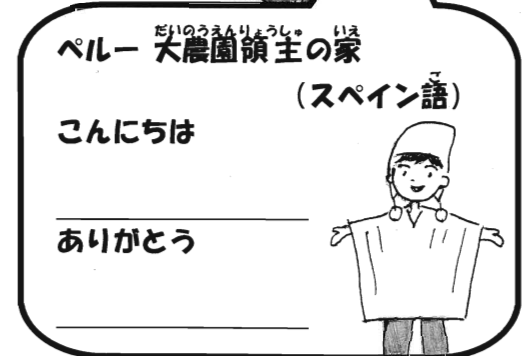 ペルー 大農園領主の家
だいのうえんりょうしゅ いえ
(スペイン語)
ご
こんにちは
ありがとう